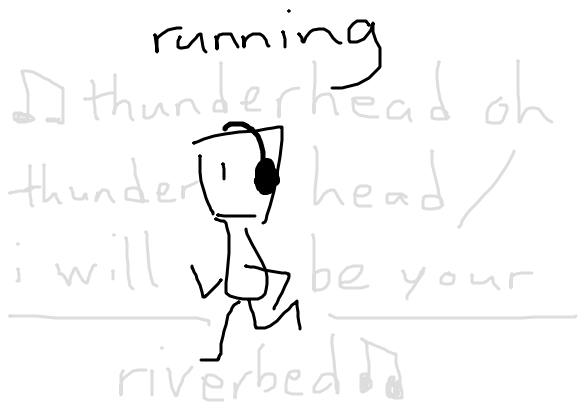 running
♫ thunderhead oh
thunderhead /
i will be your
riverbed ♫